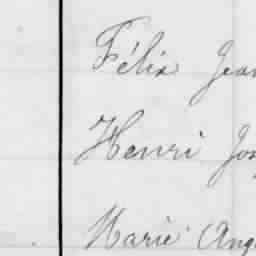 Félix Jean
Henri Jos
Marie (Ang